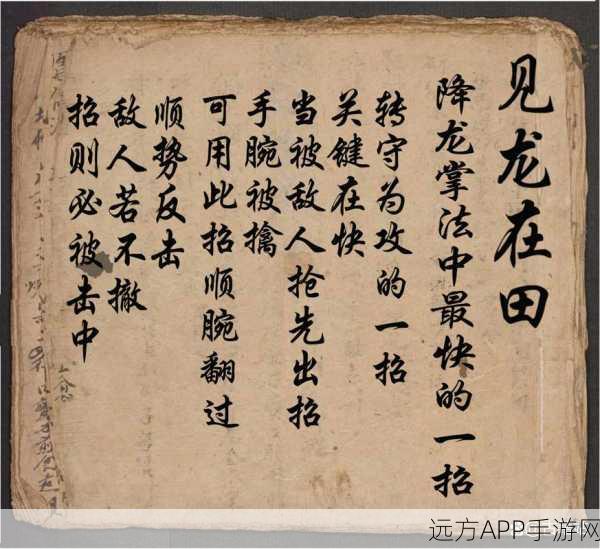 见龙在田
降龙掌法中最快的一招
转守为攻的一招
关键在快
当被敌人抢先出招
手腕被擒
可用此招顺腕翻过
顺势反击
敌人若不撤
招则必被击中
远方APP手游网